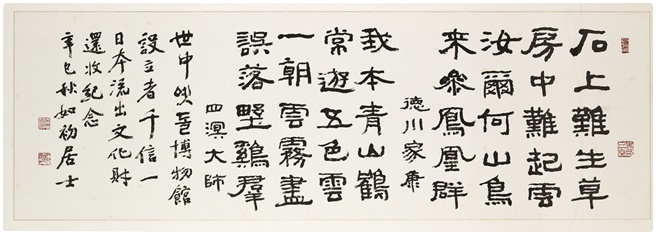 石上難生草
房中難起雲
汝爾何山鳥
來叅鳳凰群
德川家康
我本青山鶴
常遊五色雲
一朝雲霧盡
誤落野鷄羣
四溟大師
世中옛돌博物館
設立者千信一
日本流出文化財
還收紀念
辛巳秋如初居士